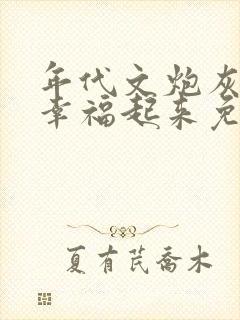 年代文炮灰
幸福起来免
夏有芪喬木